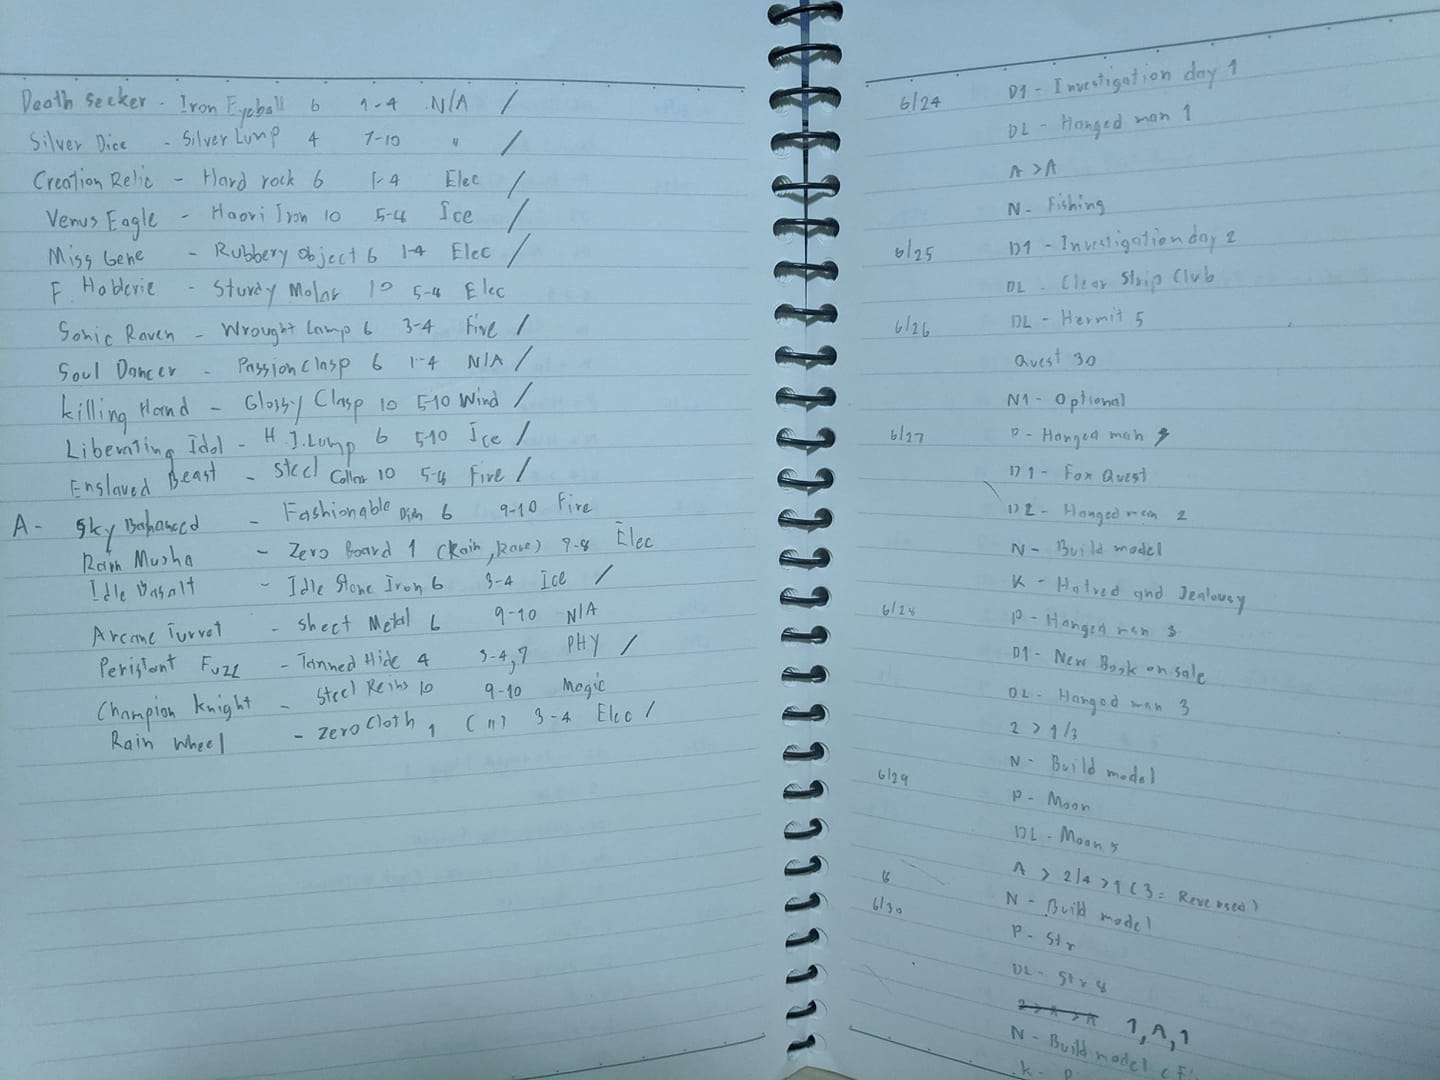 Death Seeker - Iron Eyeball 6 1-4 N/A /
Silver Dice - Silver Lump 4 7-10 " /
Creation Relic - Hard rock 6 1-4 Elec /
Venus Eagle - Haori Iron 10 5-8 Ice /
Miss Gene - Rubbery Object 6 1-4 Elec /
F. Hablerie - Sturdy Molar 10 5-8 Elec
Sonic Raven - Wrought Lamp 6 3-4 Fire /
Soul Dancer - Passion Clasp 6 1-4 N/A /
Killing Hand - Glossy Clasp 10 5-10 Wind /
Liberating Idol - H.I.Lump 6 5-10 Ice /
Enslaved Beast - Steel Collar 10 5-8 Fire /
A - Sky Balanced - Fashionable Dish 6 9-10 Fire
Rain Musha - Zero Board 1 (Rain, Rare) 7-8 Elec
Idle Basalt - Idle Stone Iron 6 3-4 Ice /
Arcane Turret - Sheet Metal 6 9-10 N/A
Peristant Fuzz - Tanned Hide 4 3-4,7 PHY /
Champion Knight - Steel Reins 10 9-10 Magic
Rain Wheel - Zero Cloth 1 (") 3-4 Elec /
6/24 D1 - Investigation day 1
DL - Hanged man 1
A > A
N - Fishing
6/25 D1 - Investigation day 2
DL - Clear Strip Club
6/26 DL - Hermit 5
Quest 30
N1 - Optional
6/27 P - Hanged man
D1 - Fox Quest
D2 - Hanged man 2
N - Build model
K - Hatred and Jealousy
6/28 P - Hanged man 3
D1 - New Book on sale
DL - Hanged man 3
2 > 1/3
N - Build model
6/29 P - Moon
DL - Moon 5
A > 2/4 > 1 (3 = Reversed)
N - Build model
6/30 P - Str
DL - Str 8
1, A, 1
N - Build model
K - P